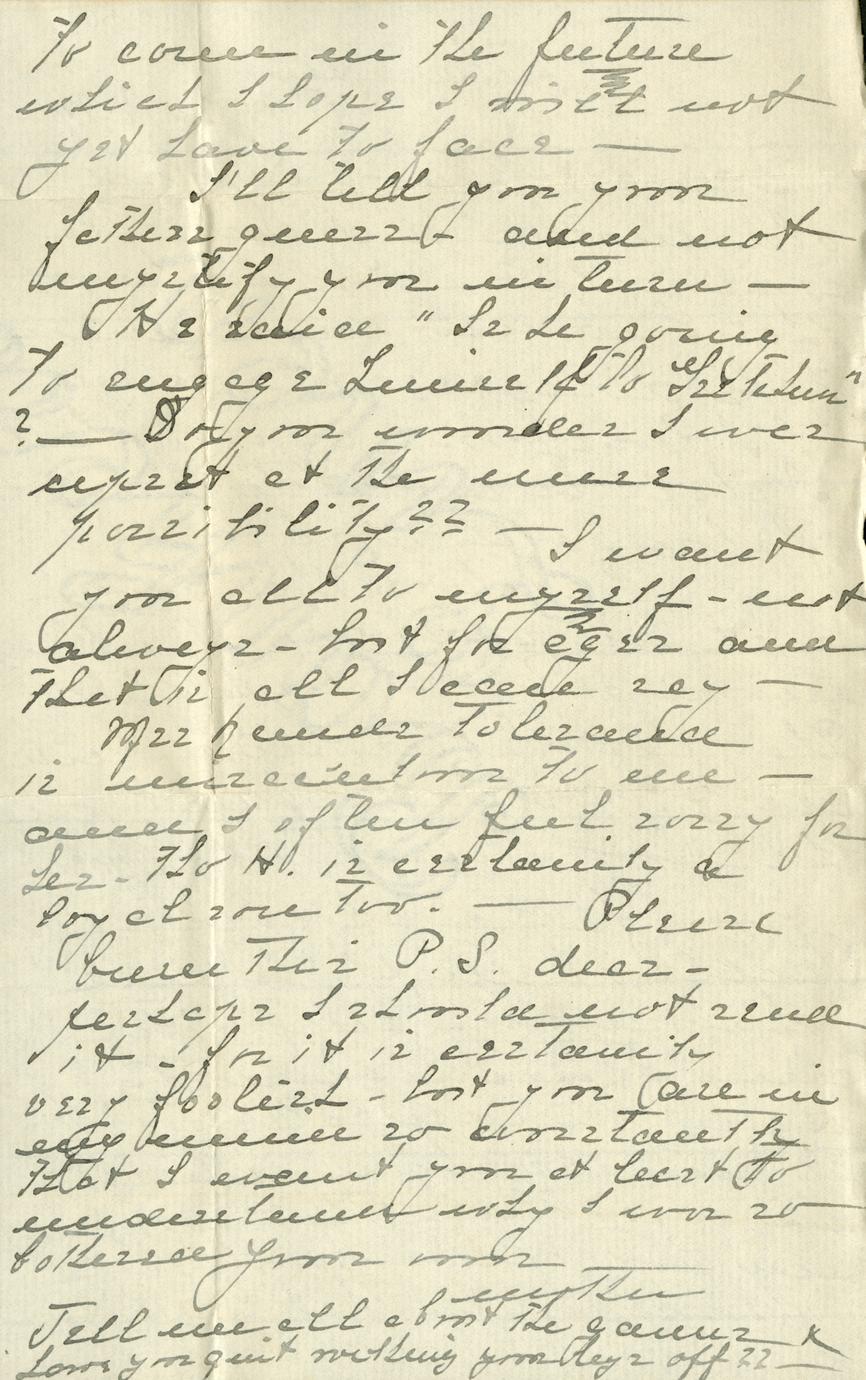 to come in the future
which I hope I will not
yet have to face —
I'll tell you your
fathers guess - and not
mystify you in turn —
He said "Is he going
to engage himself to "Gretchen"
? — Do you wonder I was
upset at the mere
possibility?? — I want
you all to myself - not
always - but for ages and
that is all I can say —
Mrs tolerance
is miraculous to me —
and I often feel sorry for
her - Tho H. is certainly a
loyal son too. — Please
burn this P.S. dear -
perhaps I should not send
it - for it is certainly
very foolish - but you are in
my mind so constantly
that I want you at least to
understand why I was so
bothered Your own
mother
Tell me all about the games &
have you quit walking your legs off ?? —